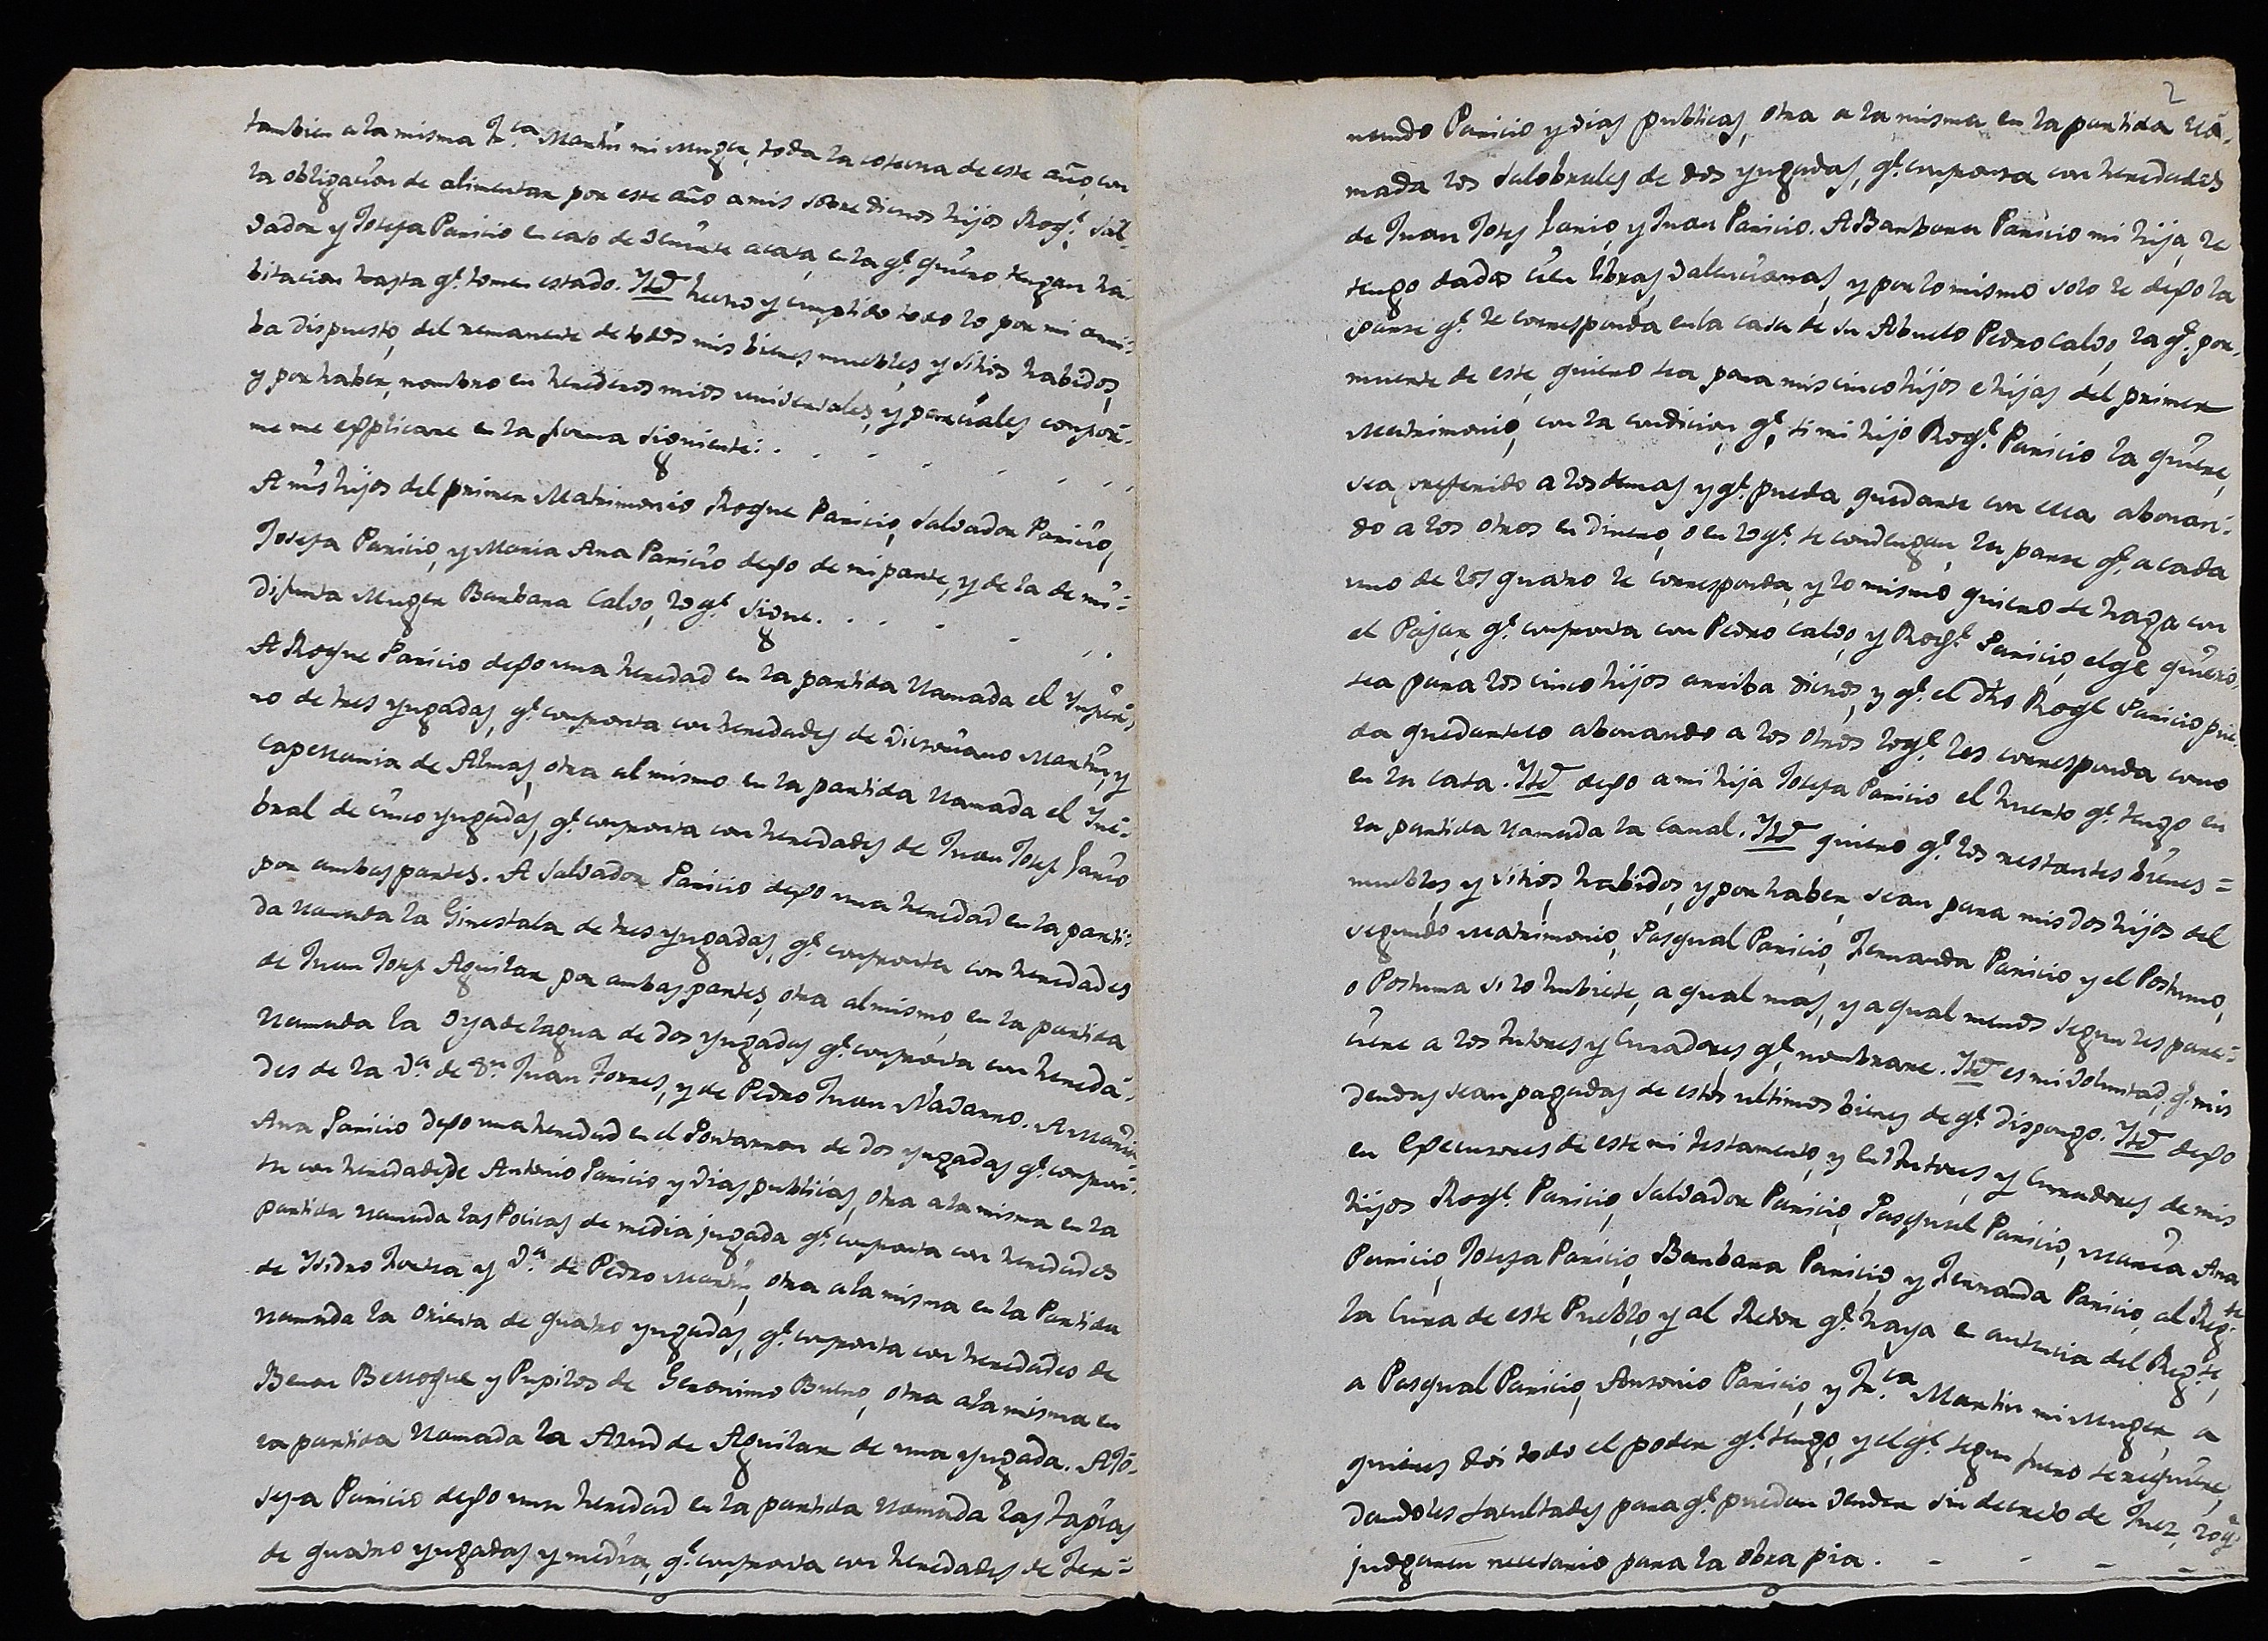 tambien a la misma Fr.ca Martin mi Muger, toda la cosecha de este año, con
la obligacion de alimentar por este año a mis sobre dichos hijos Roq.e Sal-
vador y Josefa Paricio en caso de venirse a casa, en la q.e quiero tengan ha-
bitacion hasta q.e tomen estado. Itt hecho y cumplido todo lo por mi arri-
ba dispuesto, del remanente de todos mis bienes muebles, y sitios habidos,
y por haber, nombro en herederos mios universales, y parciales confor-
me me esplicare en la forma siguiente: . . . . . . .
A mis hijos del primer Matrimonio Roque Paricio, Salvador Paricio,
Josefa Paricio, y Maria Ana Paricio dejo de mi parte, y de la de mi =
difunta Muger Barbara Calvo, lo q.e sigue. . . . . . .
A Roque Paricio dejo una heredad en la partida llamada el Ynfier-
no de tres yugadas, q.e confronta con heredades de Victoriano Martin, y
Capellania de Almas, otra al mismo en la partida llamada el
bral de cinco yugadas, q.e confronta con heredades de Juan Josef Paricio
por ambas partes. A Salvador Paricio dejo una heredad en la parti-
da llamada la Ginestala de tres yugadas, q.e confronta con heredades
de Juan Josef Aguilar por ambas partes, otra al mismo, en la partida
llamada la oya del agua de dos yugadas q.e confronta con hereda-
des de la V.a de D.n Juan Torres, y de Pedro Juan Navarro. A Maria
Ana Paricio dejo una heredad en el de dos yugadas q.e confron-
ta con heredades de Antonio Paricio y vias publicas, otra a la misma en la
partida llamada las Pocicas de media jugada q.e confronta con heredades
de Ysidro y V.a de Pedro Martin, otra a la misma en la Partida
llamada la de quatro yugadas, q.e confronta con heredades de
Bellogue y Pupilos de Geronimo Bueno, otra a la misma en
la partida llamada la Azud de Aguilar de una yugada. A Jo-
sefa Paricio dejo una heredad en la partida llamada las Tapias
de quatro yugadas y media, q.e confronta con heredades de Fer=
2
nando Paricio y vias publicas, otra a la misma en la partida lla-
mada los Salobrales de dos yugadas, q.e confronta con heredades
de Juan Josef Paricio y Juan Paricio. A Barbara Paricio mi hija, le
tengo dados cien libras Valencianas, y por lo mismo solo le dejo la
parte q.e le corresponda en la casa de su Abuelo Pedro Calvo, la q.e por
muerte de este, quiero sea para mis cinco hijos e hijas del primer
Matrimonio, con la condicion q.e si mi hijo Roq.e Paricio la quiere,
sea preferido a los demas y q.e pueda quedarse con ella abonan-
do a los otros en dinero, o en lo q.e se convengan, la parte q.e a cada
uno de los quatro le corresponda, y lo mismo quiero se haga con
el Pajar, q.e confronta con Pedro Calvo, y Roq.e Paricio, el q.e quiero
sea para los cinco hijos arriba dichos, y q.e el dho Roq.e Paricio pue-
da quedarselo abonando a los otros lo q.e les corresponda como
en la casa. Itt dejo a mi hija Josefa Paricio el huerto q.e tengo en
la partida llamada la Canal. Itt quiero q.e los restantes bienes =
muebles, y sitios, habidos, y por haber, sean para mis dos hijos del
segundo Matrimonio, Pasqual Paricio, Fernanda Paricio y el Postumo,
o Postuma si lo hubiese, a qual mas, y a qual menos segun les pare-
ciere a los tutores y Curadores, q.e nombrare. Itt es mi voluntad, q.e mis
deudas sean pagadas de estos ultimos bienes de q.e dispongo. Itt dejo
en Ejecutores de este mi testamento, y en tutores y Curadores de mis
hijos Roq.e Paricio, Salvador Paricio, Pasqual Paricio, Maria Ana
Paricio, Josefa Paricio, Barbara Paricio, y Fernanda Paricio, al Reg.te
la Cura de este Pueblo, y al Retor q.e haya en ausencia del Reg.te,
a Pasqual Paricio, Antonio Paricio, y Fr.ca Martin mi Muger, a
quienes doi todo el poder q.e tengo, y el q.e segun fuero se requiere,
dandoles facultades para q.e puedan vender sin decreto de Juez, lo q.e
judgaren necesario para la obra pia. - - - -